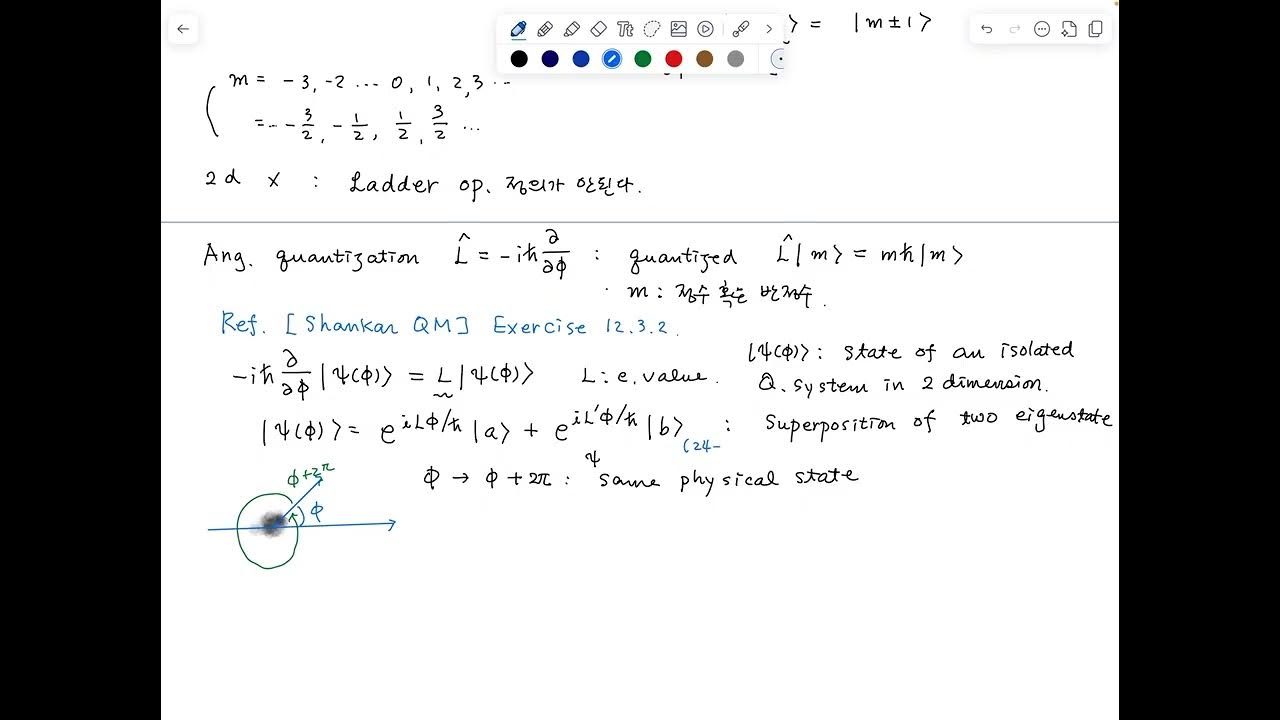 ⟩ = |m±1⟩
m = -3, -2 ... 0, 1, 2, 3 ...
=.. -3/2, -1/2, 1/2, 3/2 ...
2d × : Ladder op. 정의가 안된다.
Ang. quantization L̂ = -iħ ∂/∂ϕ : quantized L̂|m⟩ = mħ|m⟩
· m : 정수 혹은 반정수.
Ref. [Shankar QM] Exercise 12.3.2.
|Ψ(ϕ)⟩ : state of an isolated
Q. system in 2 dimension.
-iħ ∂/∂ϕ |Ψ(ϕ)⟩ = L|Ψ(ϕ)⟩ L : e. value.
|Ψ(ϕ)⟩ = e^{iLϕ/ħ} |a⟩ + e^{iL'ϕ/ħ} |b⟩ (24- : Superposition of two eigenstate
ϕ → ϕ + 2π : Ψ same physical state
ϕ+2π
ϕ
Tt